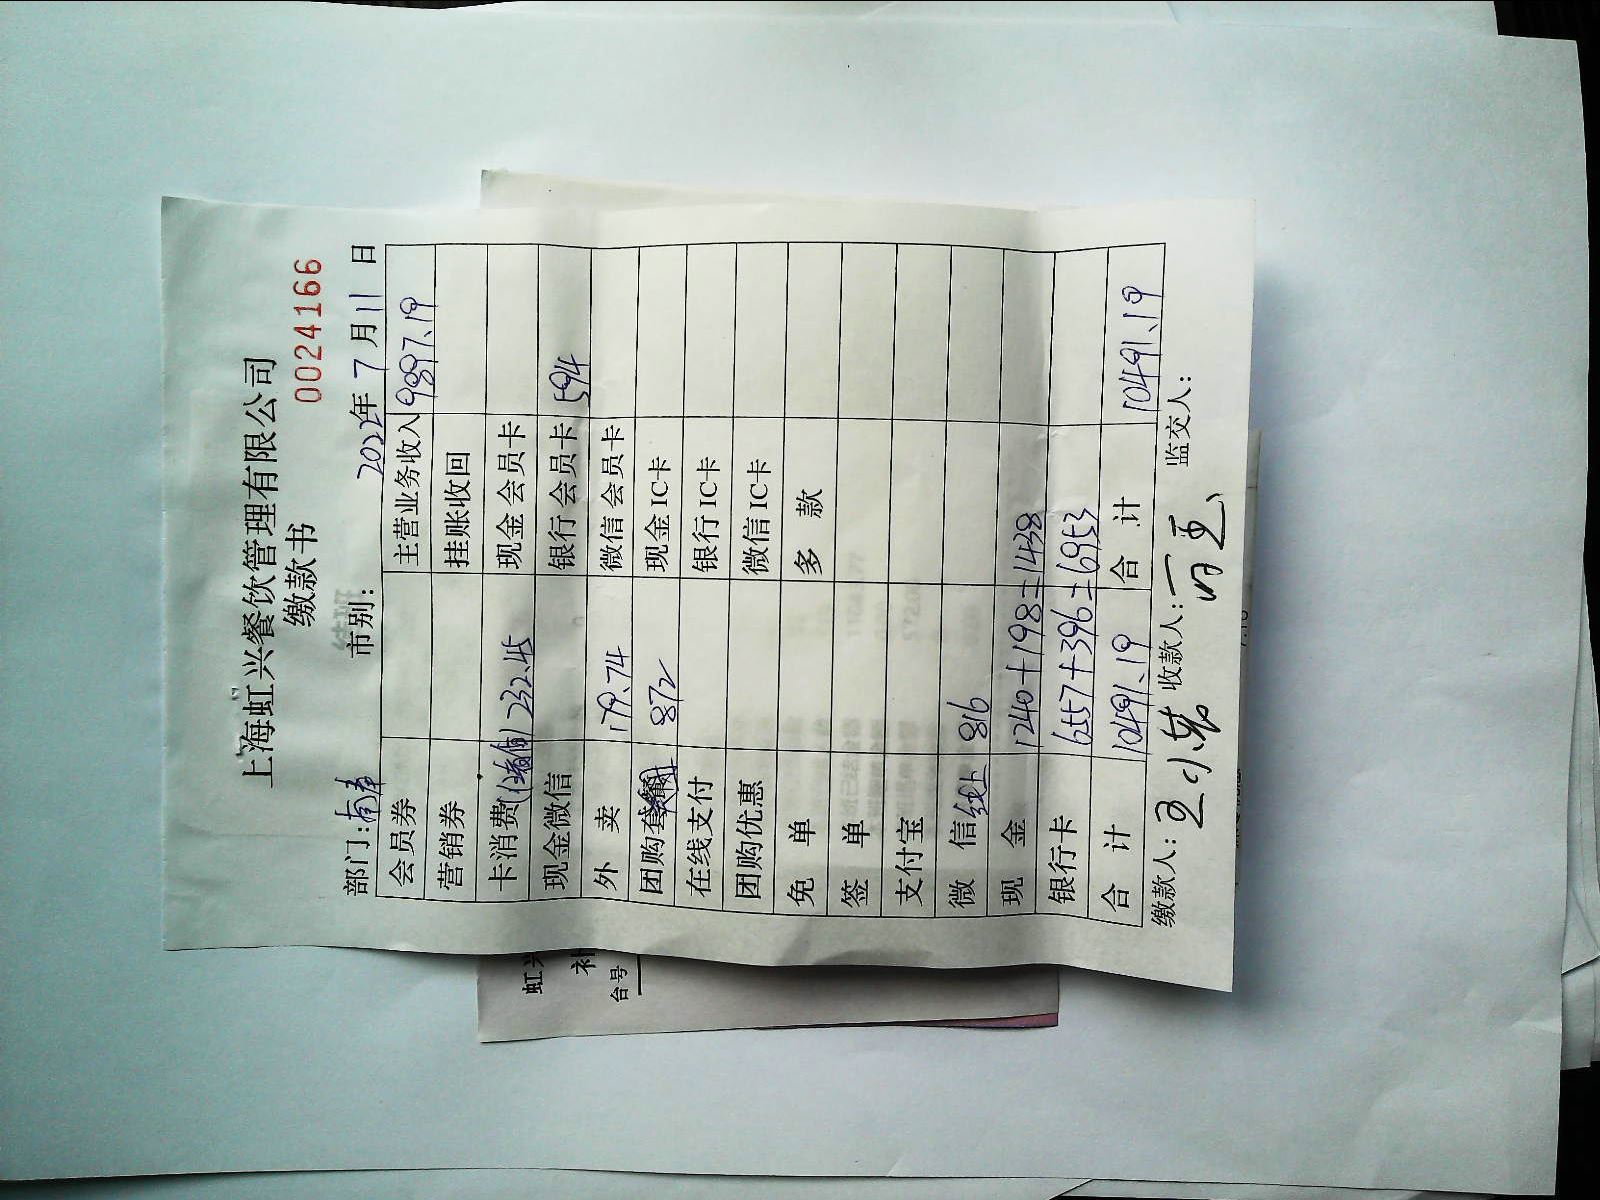 上海虹兴餐饮管理有限公司
缴款书
0024166
部门: 市别: 2022年 7 月 11 日
会员券 主营业务收入 9897.19
营销券 挂账收回
卡消费 (储值) 232.45 现金会员卡
现金微信 银行会员卡 594
外 卖 179.74 微信会员卡
团购套餐 872 现金IC卡
在线支付 银行IC卡
团购优惠 微信IC卡
免 单 多 款
签 单
支付宝
微 信 线上 816
现 金 1240+198=1438
银行卡 6557+396=6953
合 计 10491.19 合 计 10491.19
缴款人: 收款人: 监交人:
虹兴
补
台号